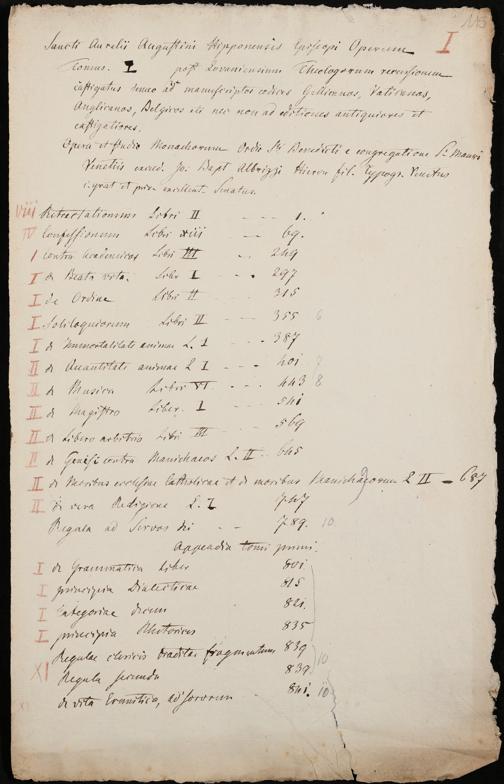 115
I
Sancti Aurelii Augustini Hipponensis Episcopi Operum
Tomus. I post Lovaniensium Theologorum recensionem
castigatus denuo ad manuscriptos codices Gallicanos, Vaticanos,
Anglicanos, Belgicos etc nec non ad editiones antiquiores et
castigatiores.
Opera et studio Monachorum Ordis Sti Benedicti e congregatione S. Mauri
Venetiis excud. Jo. Bapt Albrizzi Hieron fil. typogr. Venetus
Senatus.
VIII Retractationum Libri II - - - 1.
IV Confessionum Libri XIII - - 69.
I contra Academicos Libri III - - 249
I de Beata vita. Libr I - - - 297
I de Ordine Libri II - - - 315
I Soliloquiorum Libri II - - - 355 6
I de Immortalitate animae L. I - - - 387
II de Quantitate animae L I - - - 401
II de Musica Libri VI - - - 443 8
II de Magistro Liber. I - - - 541
II de Libero arbitrio Libri III - - - 569
II de Genesi contra Manichaeos L. II - - 645
II de Moribus ecclesiae Catholicae et de moribus Manichaeorum L II - 687
II de vera Religione L. I 747
Regula ad Servos dei - - 789. 10
Appendix tomi primi.
I de Grammatica Liber 801.
I principia Dialecticae 815
I Categoriae decem 821.
I principia Rhetorices 835
Regulae clericis traditae fragmentum 839 10
XI Regula secunda 839
de vita Eremitica, ad sororem 841. 10